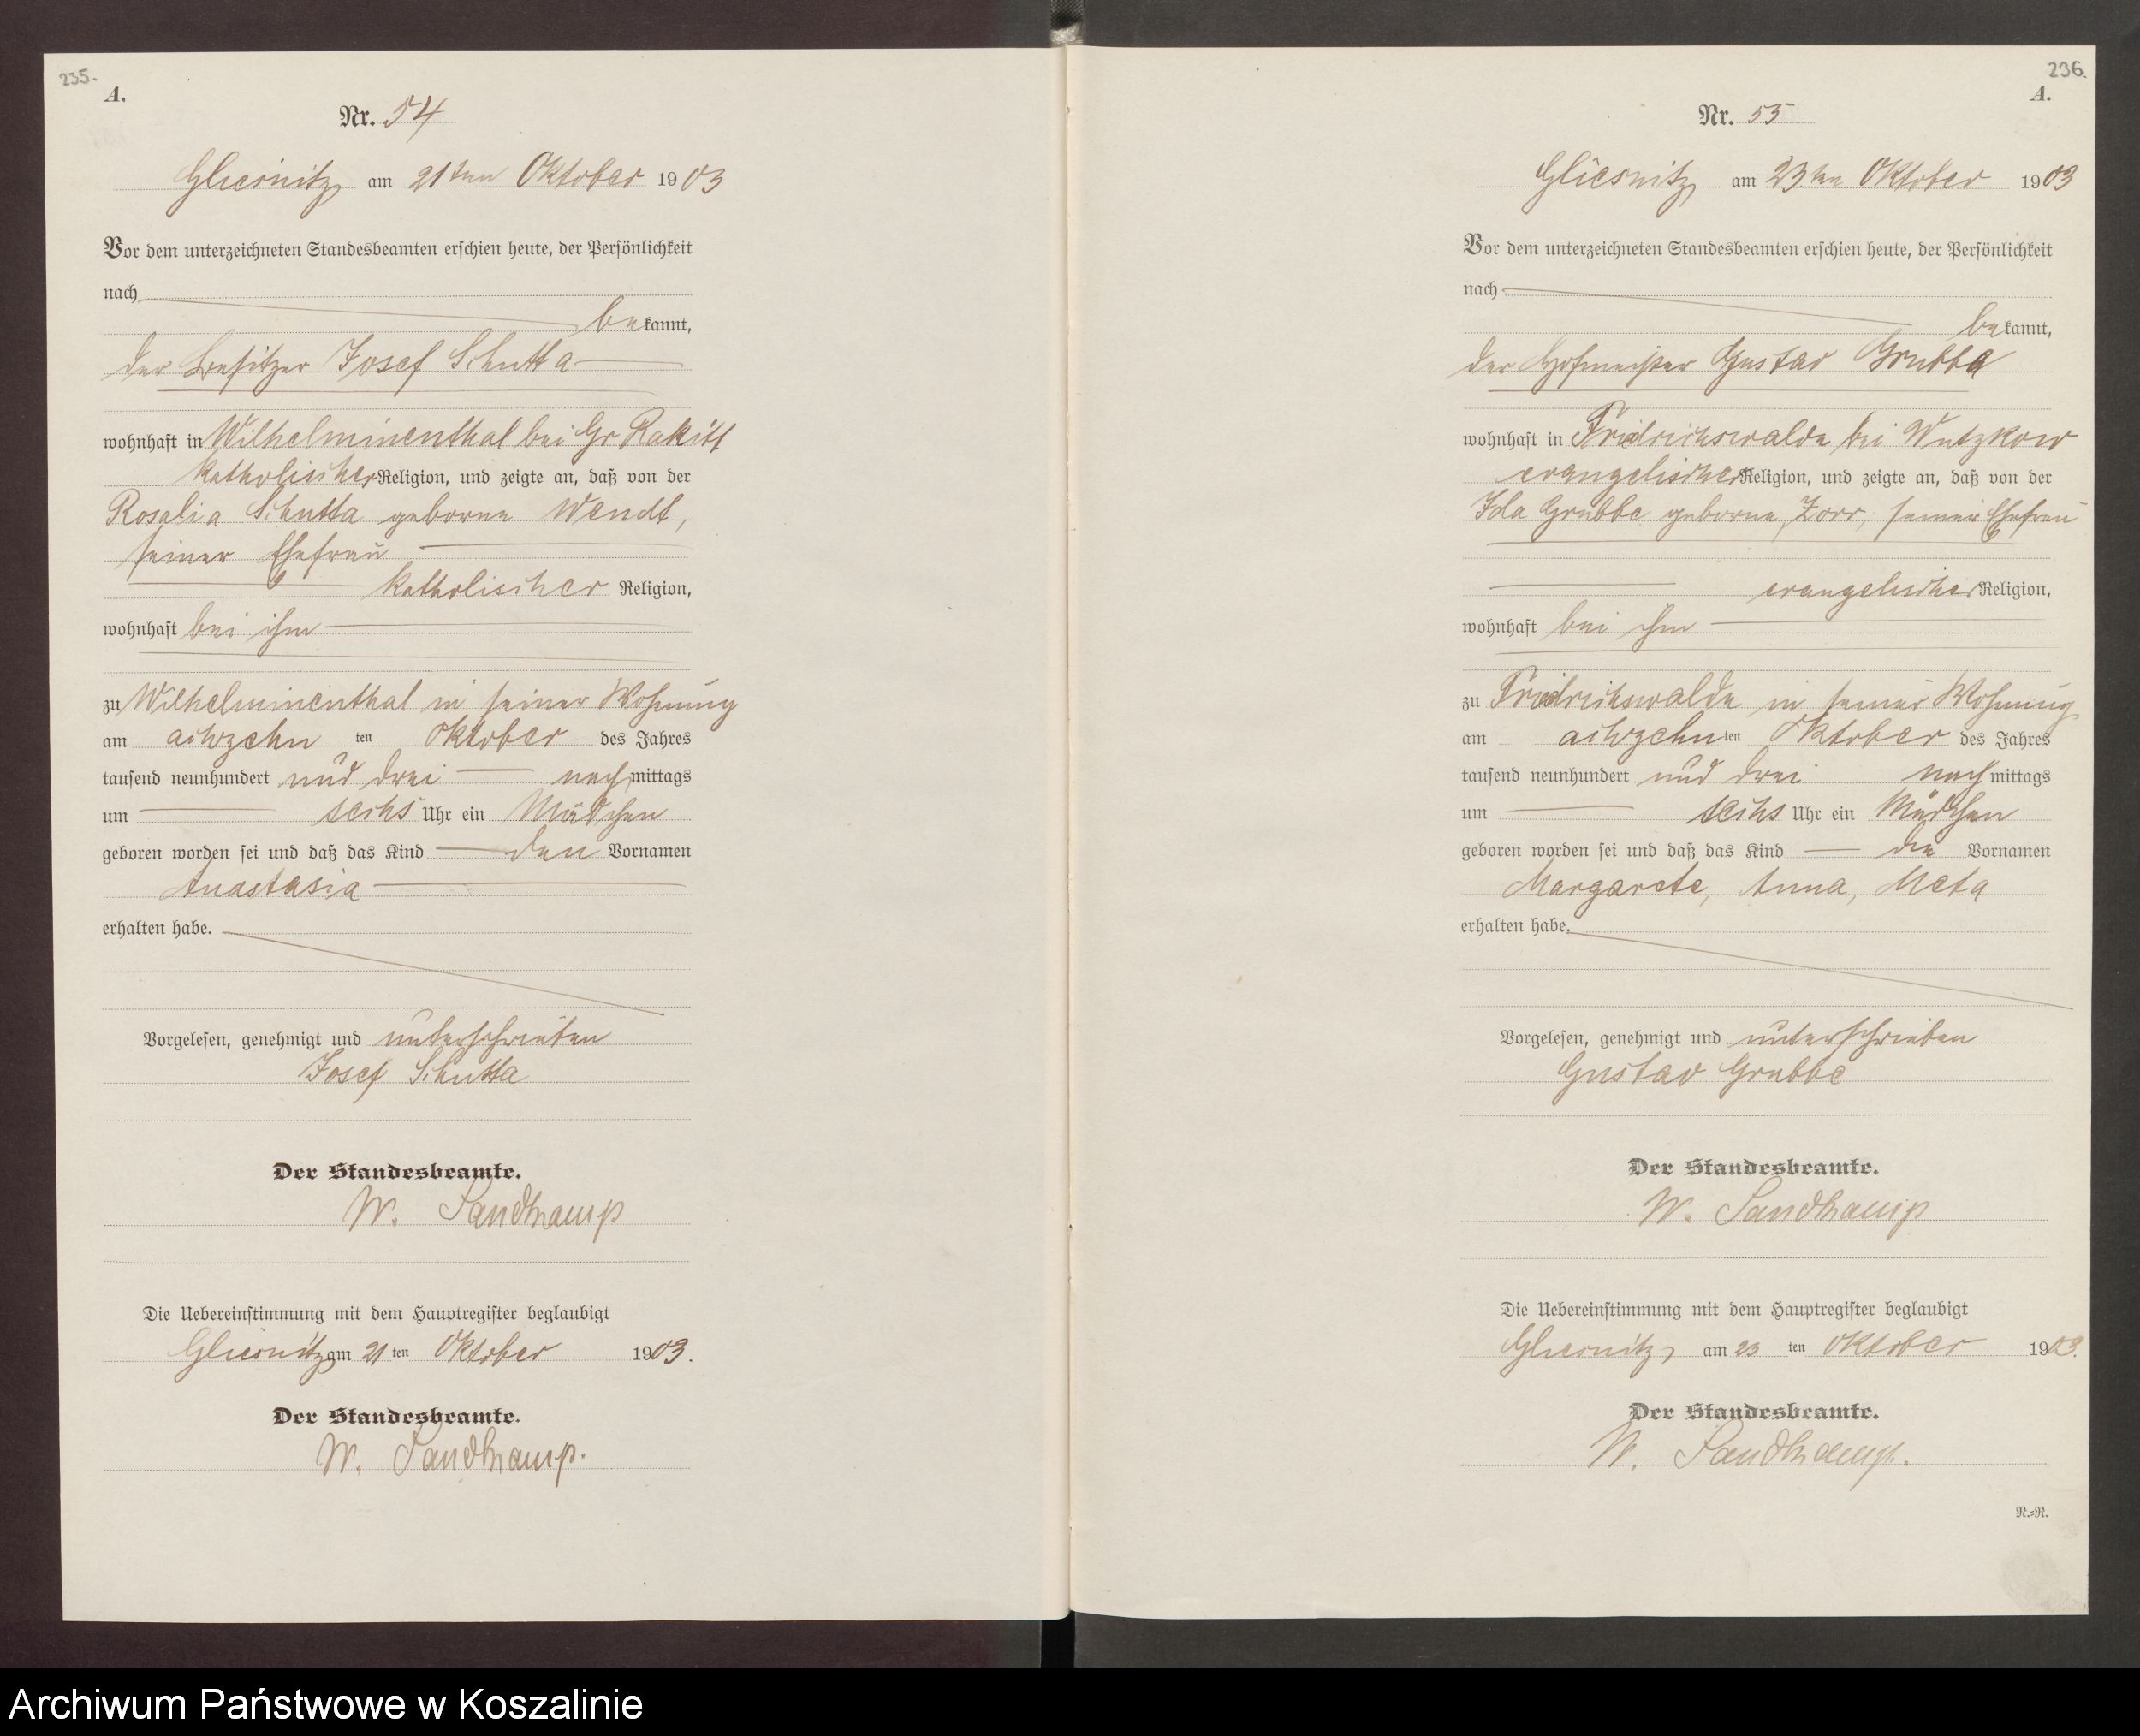 235.
A.
Nr. 54
Gliesnitz, am 21ten Oktober 1903
Vor dem unterzeichneten Standesbeamten erschien heute, der Persönlichkeit
nach
bekannt,
der Besitzer Josef Schutta
wohnhaft in Wilhelminenthal bei Gr Rakitt
katholischer Religion, und zeigte an, daß von der
Rosalia Schutta geborne Wendt,
seiner Ehefrau
katholischer Religion,
wohnhaft bei ihm
zu Wilhelminenthal in seiner Wohnung
am achtzehn ten Oktober des Jahres
tausend neunhundert und drei nachmittags
um sechs Uhr ein Mädchen
geboren worden sei und daß das Kind den Vornamen
Anastasia
erhalten habe.
Vorgelesen, genehmigt und unterschrieben
Josef Schutta
Der Standesbeamte.
W. Sandkamp
Die Uebereinstimmung mit dem Hauptregister beglaubigt
Gliesnitz, am 21 ten Oktober 1903.
Der Standesbeamte.
W. Sandkamp.
236.
A.
Nr. 55
Gliesnitz, am 23.ten Oktober 1903
Vor dem unterzeichneten Standesbeamten erschien heute, der Persönlichkeit
nach
bekannt,
der Hofmeister Gustav Grubbe
wohnhaft in Friedrichswalde bei Wutzkow
evangelischer Religion, und zeigte an, daß von der
Ida Grubbe geborne Zorr, seiner Ehefrau
evangelischer Religion,
wohnhaft bei ihm
zu Friedrichswalde in seiner Wohnung
am achtzehn ten Oktober des Jahres
tausend neunhundert und drei nachmittags
um sechs Uhr ein Mädchen
geboren worden sei und daß das Kind die Vornamen
Margarete, Anna, Meta
erhalten habe.
Vorgelesen, genehmigt und unterschrieben
Gustav Grubbe
Der Standesbeamte.
W. Sandkamp
Die Uebereinstimmung mit dem Hauptregister beglaubigt
Gliesnitz, am 23 ten Oktober 1903.
Der Standesbeamte.
W. Sandkamp.
N.=R.
Archiwum Państwowe w Koszalinie